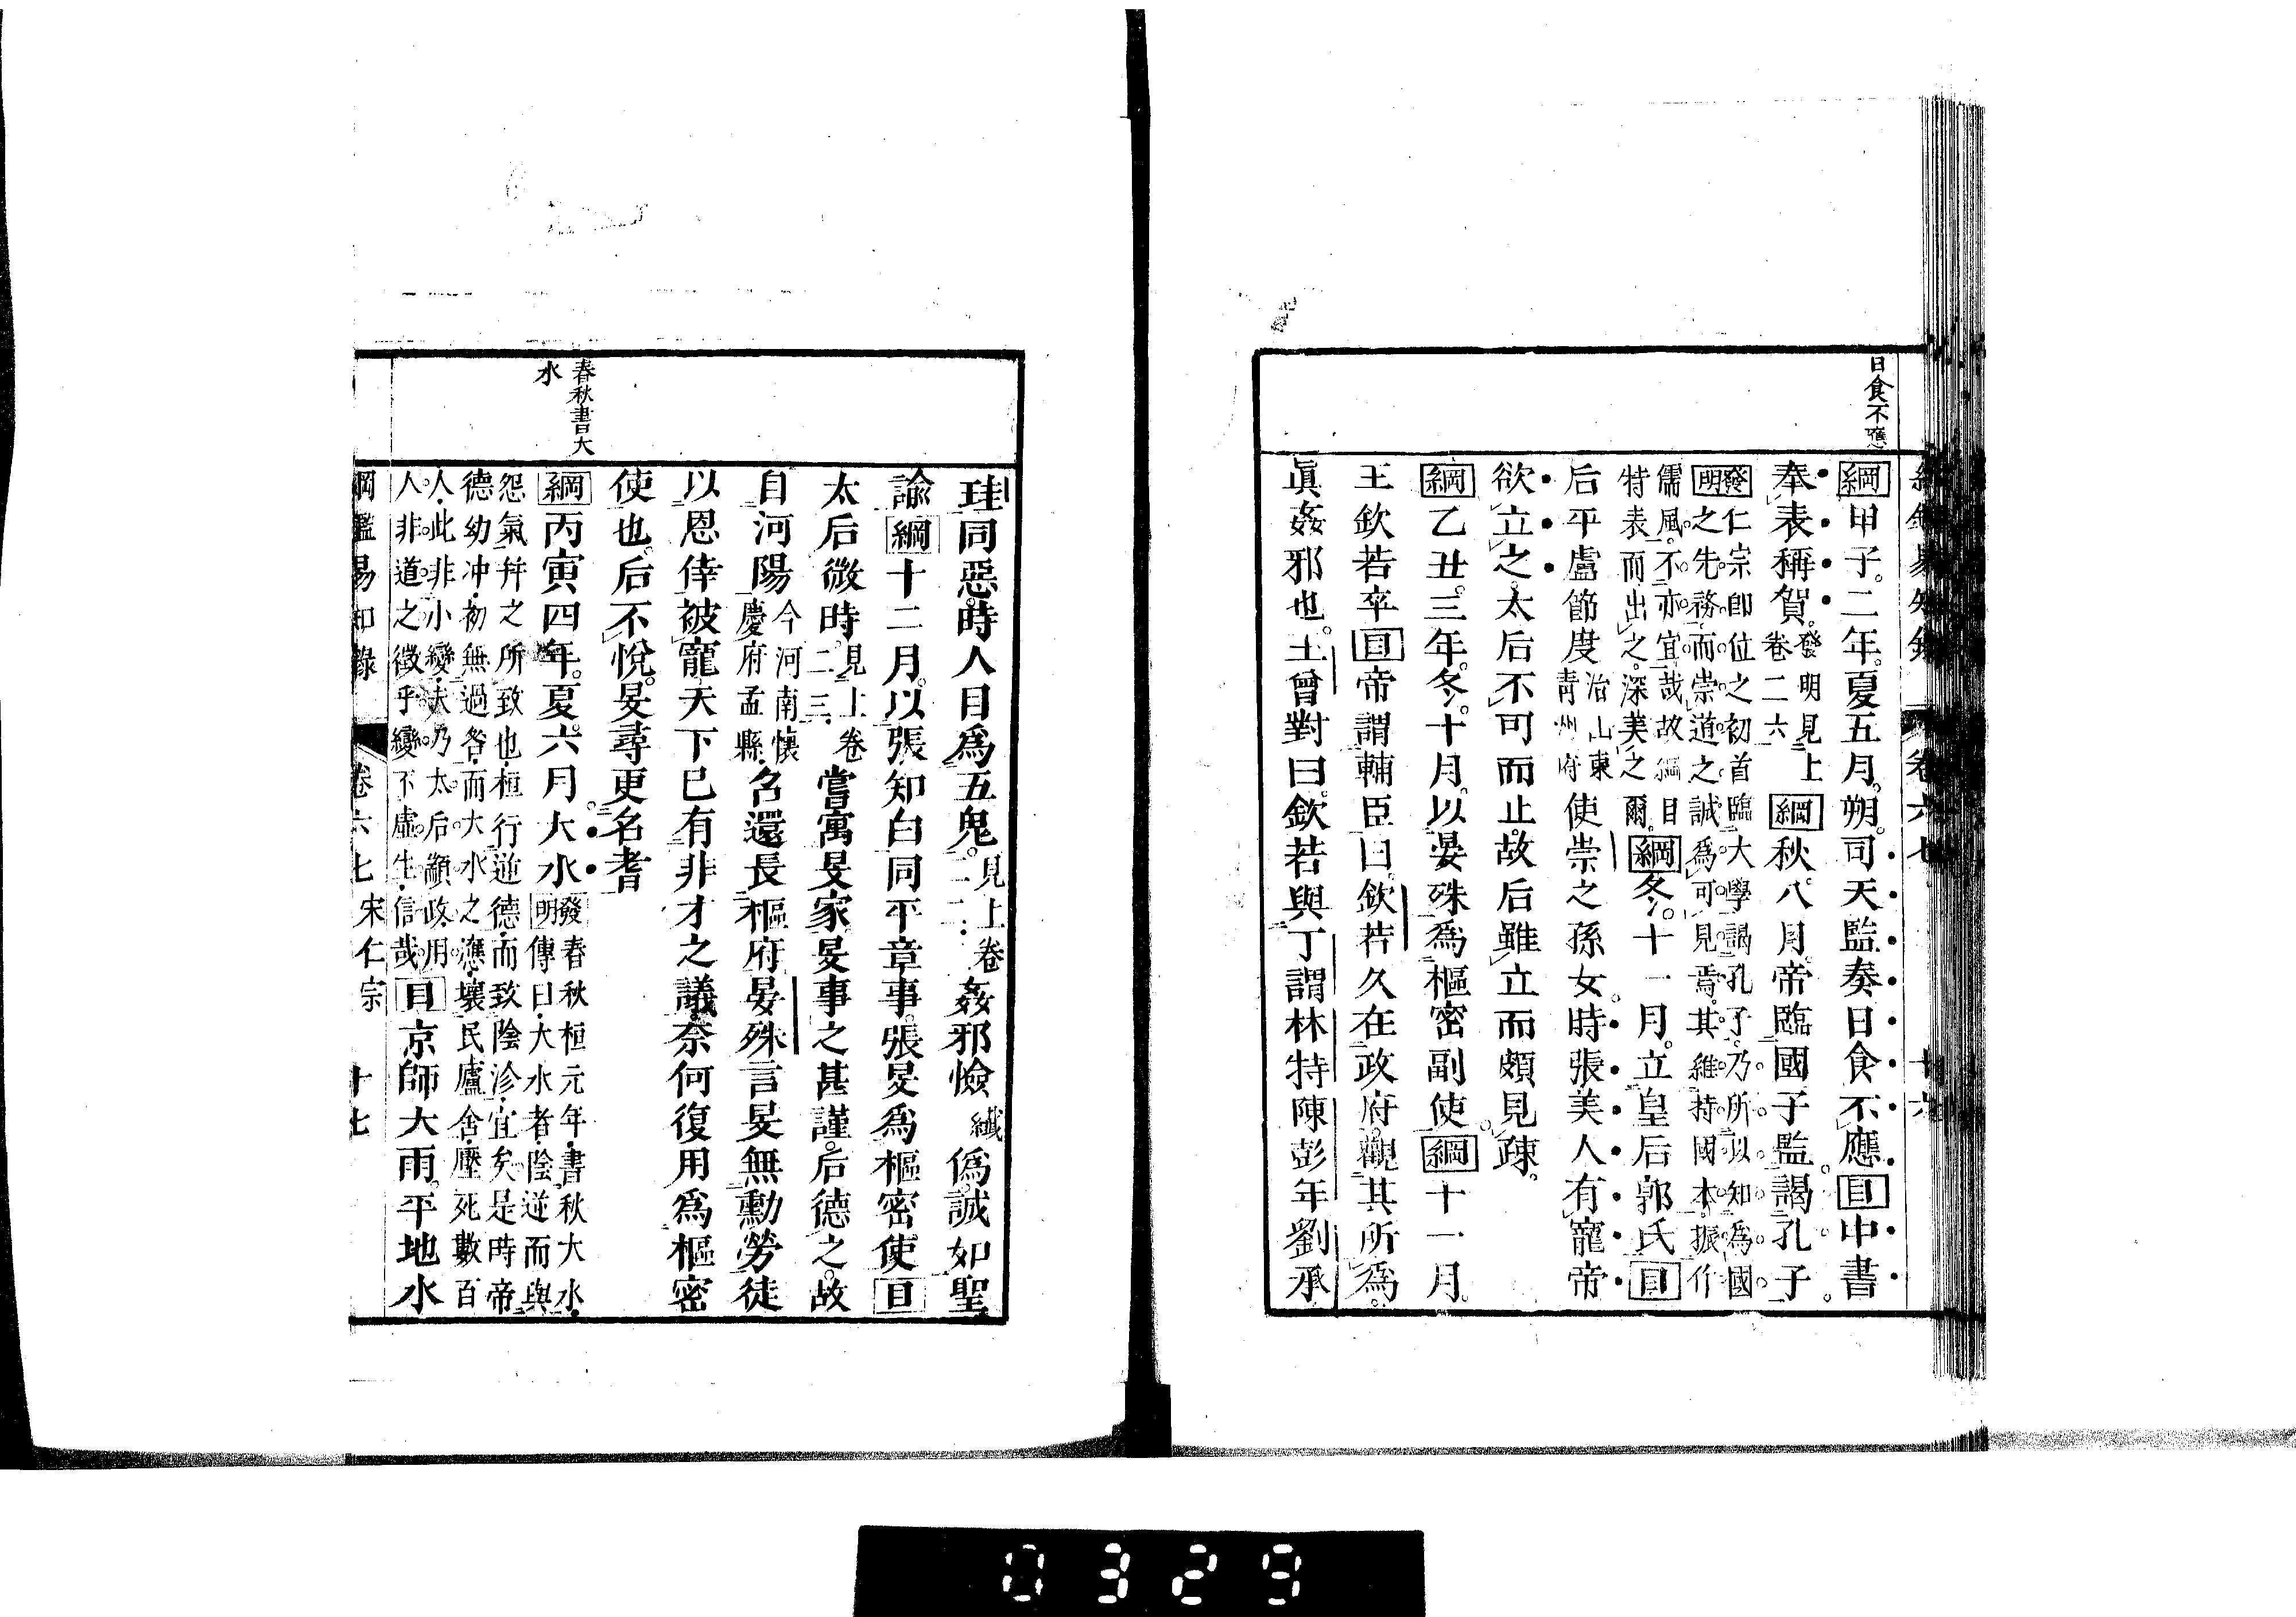 日食不應
綱甲子。二年。夏五月。朔。司天監奏日食不應目中書
奉表稱賀。發明見上卷二六綱秋。八月。帝臨國子監。謁孔子。
發明仁宗卽位之初首臨大學謁孔子。乃所以知為國
之先務。而崇道之誠。為可見焉。其維持國本。振作
儒風。不亦宜哉故綱目
特表而出之。深美之爾。綱冬。十一月。立皇后郭氏目
后平盧節度治山東青州府使崇之孫女。時張美人有寵帝
欲立之。太后不可而止。故后雖立而頗見疎。
綱乙丑。三年。冬。十月。以晏殊為樞密副使。綱十一月。
王欽若卒目帝謂輔臣曰。欽若久在政府。觀其所為。
眞姦邪也。王曾對曰。欽若與丁謂林特陳彭年劉承
珪同惡。時人目爲五鬼。見上卷一二姦邪憸纖僞。誠如聖
諭綱十二月。以張知白同平章事。張旻爲樞密使目
太后微時。見上卷二三嘗寓旻家旻事之甚謹。后德之。故
自河陽今河南懷慶府孟縣召還長樞府晏殊言旻無勳勞徒
以恩倖被寵。天下已有非才之議。奈何復用爲樞密
使也。后不悅。旻尋更名耆
春秋書大
水
綱丙寅四年。夏。六月大水發明春秋桓元年。書秋大水。
傳曰。大水者。陰逆而與
怨氣幷之所致也。桓行逆德。而致陰沴。宜矣。是時帝
德幼冲。初無過咎。而大水之應。壞民廬舍。壓死數百
人。此非小變。夫乃太后顓政。用
人。非道之徵乎。變不虛生。信哉。目京師大雨。平地水
綱鑑易知錄 卷六七 宋仁宗 十七